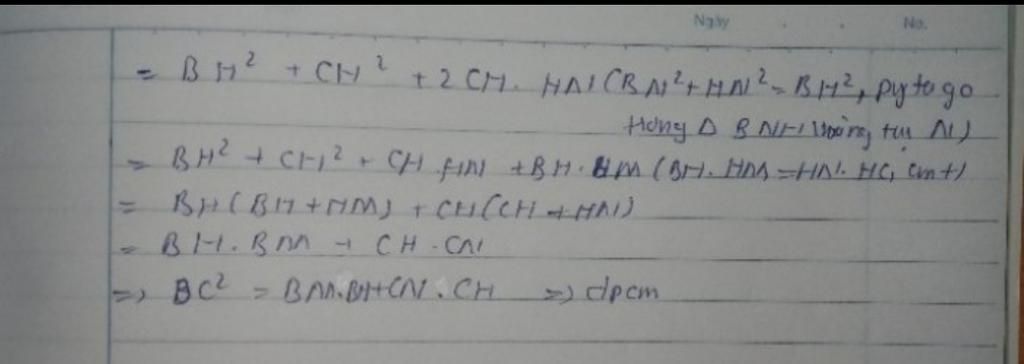 Ngày No.
= BH² + CH² + 2 CH. HN (BN² + HN² = BH², pytago
trong Δ BNH vuông tại N)
= BH² + CH² + CH. HN + BH. HM (BH. HM = HN. HC, cmt)
= BH(BH + HM) + CH(CH + HN)
= BH. BM + CH. CN
=> BC² = BM.BH + CN. CH => đpcm